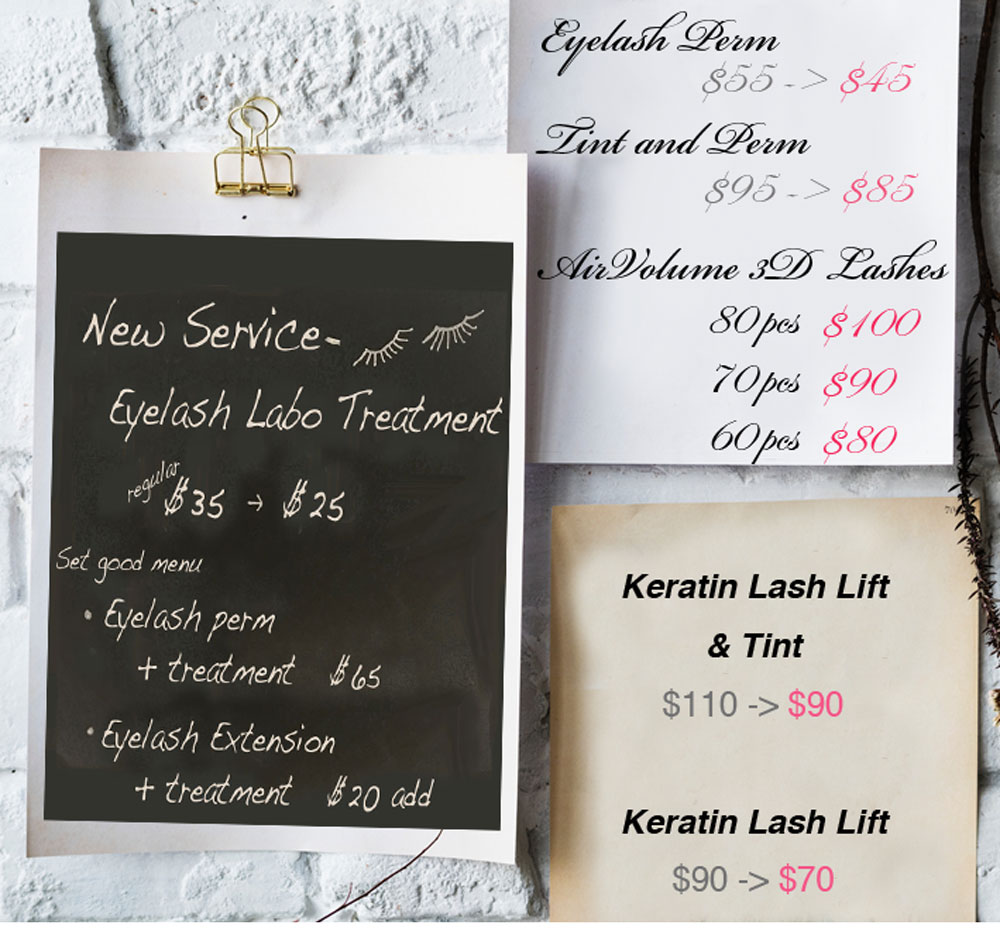 New Service-
Eyelash Labo Treatment
regular
$35 → $25
Set good menu
• Eyelash perm
+ treatment $65
• Eyelash Extension
+ treatment $20 add
Eyelash Perm
$55 -> $45
Tint and Perm
$95 -> $85
AirVolume 3D Lashes
80pcs $100
70pcs $90
60pcs $80
Keratin Lash Lift
& Tint
$110 -> $90
Keratin Lash Lift
$90 -> $70